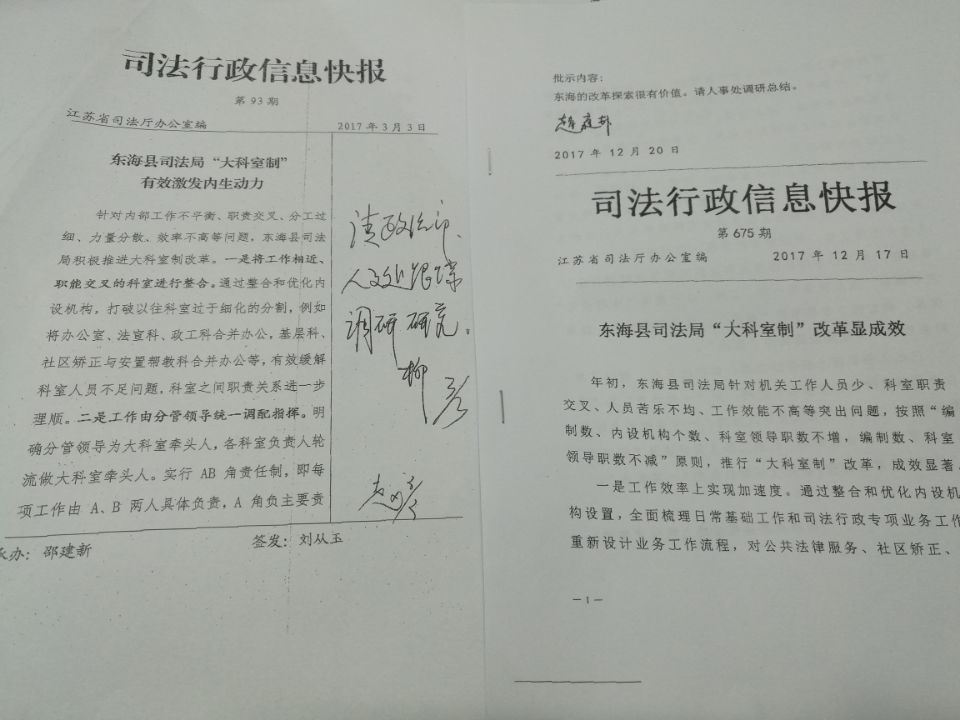 司法行政信息快报
第 93 期
江苏省司法厅办公室编 2017 年 3 月 3 日
东海县司法局“大科室制”
有效激发内生动力
针对内部工作不平衡、职责交叉、分工过
细、力量分散、效率不高等问题，东海县司法
局积极推进大科室制改革。一是将工作相近、
职能交叉的科室进行整合。通过整合和优化内
设机构，打破以往科室过于细化的分割，例如
将办公室、法宣科、政工科合并办公，基层科、
社区矫正与安置帮教科合并办公等，有效缓解
科室人员不足问题，科室之间职责关系进一步
理顺。二是工作由分管领导统一调配指挥。明
确分管领导为大科室牵头人，各科室负责人轮
流做大科室牵头人。实行 AB 角责任制，即每
项工作由 A、B 两人具体负责，A 角负主要责
请政法
人
调研 研究。
承办：邵建新 签发：刘从玉
批示内容：
东海的改革探索很有价值。请人事处调研总结。
2017 年 12 月 20 日
司法行政信息快报
第 675 期
江苏省司法厅办公室编 2017 年 12 月 17 日
东海县司法局“大科室制”改革显成效
年初，东海县司法局针对机关工作人员少、科室职责
交叉、人员苦乐不均、工作效能不高等突出问题，按照“编
制数、内设机构个数、科室领导职数不增，编制数、科室
领导职数不减”原则，推行“大科室制”改革，成效显著。
一是工作效率上实现加速度。通过整合和优化内设机
构设置，全面梳理日常基础工作和司法行政专项业务工作
重新设计业务工作流程，对公共法律服务、社区矫正、
—1—